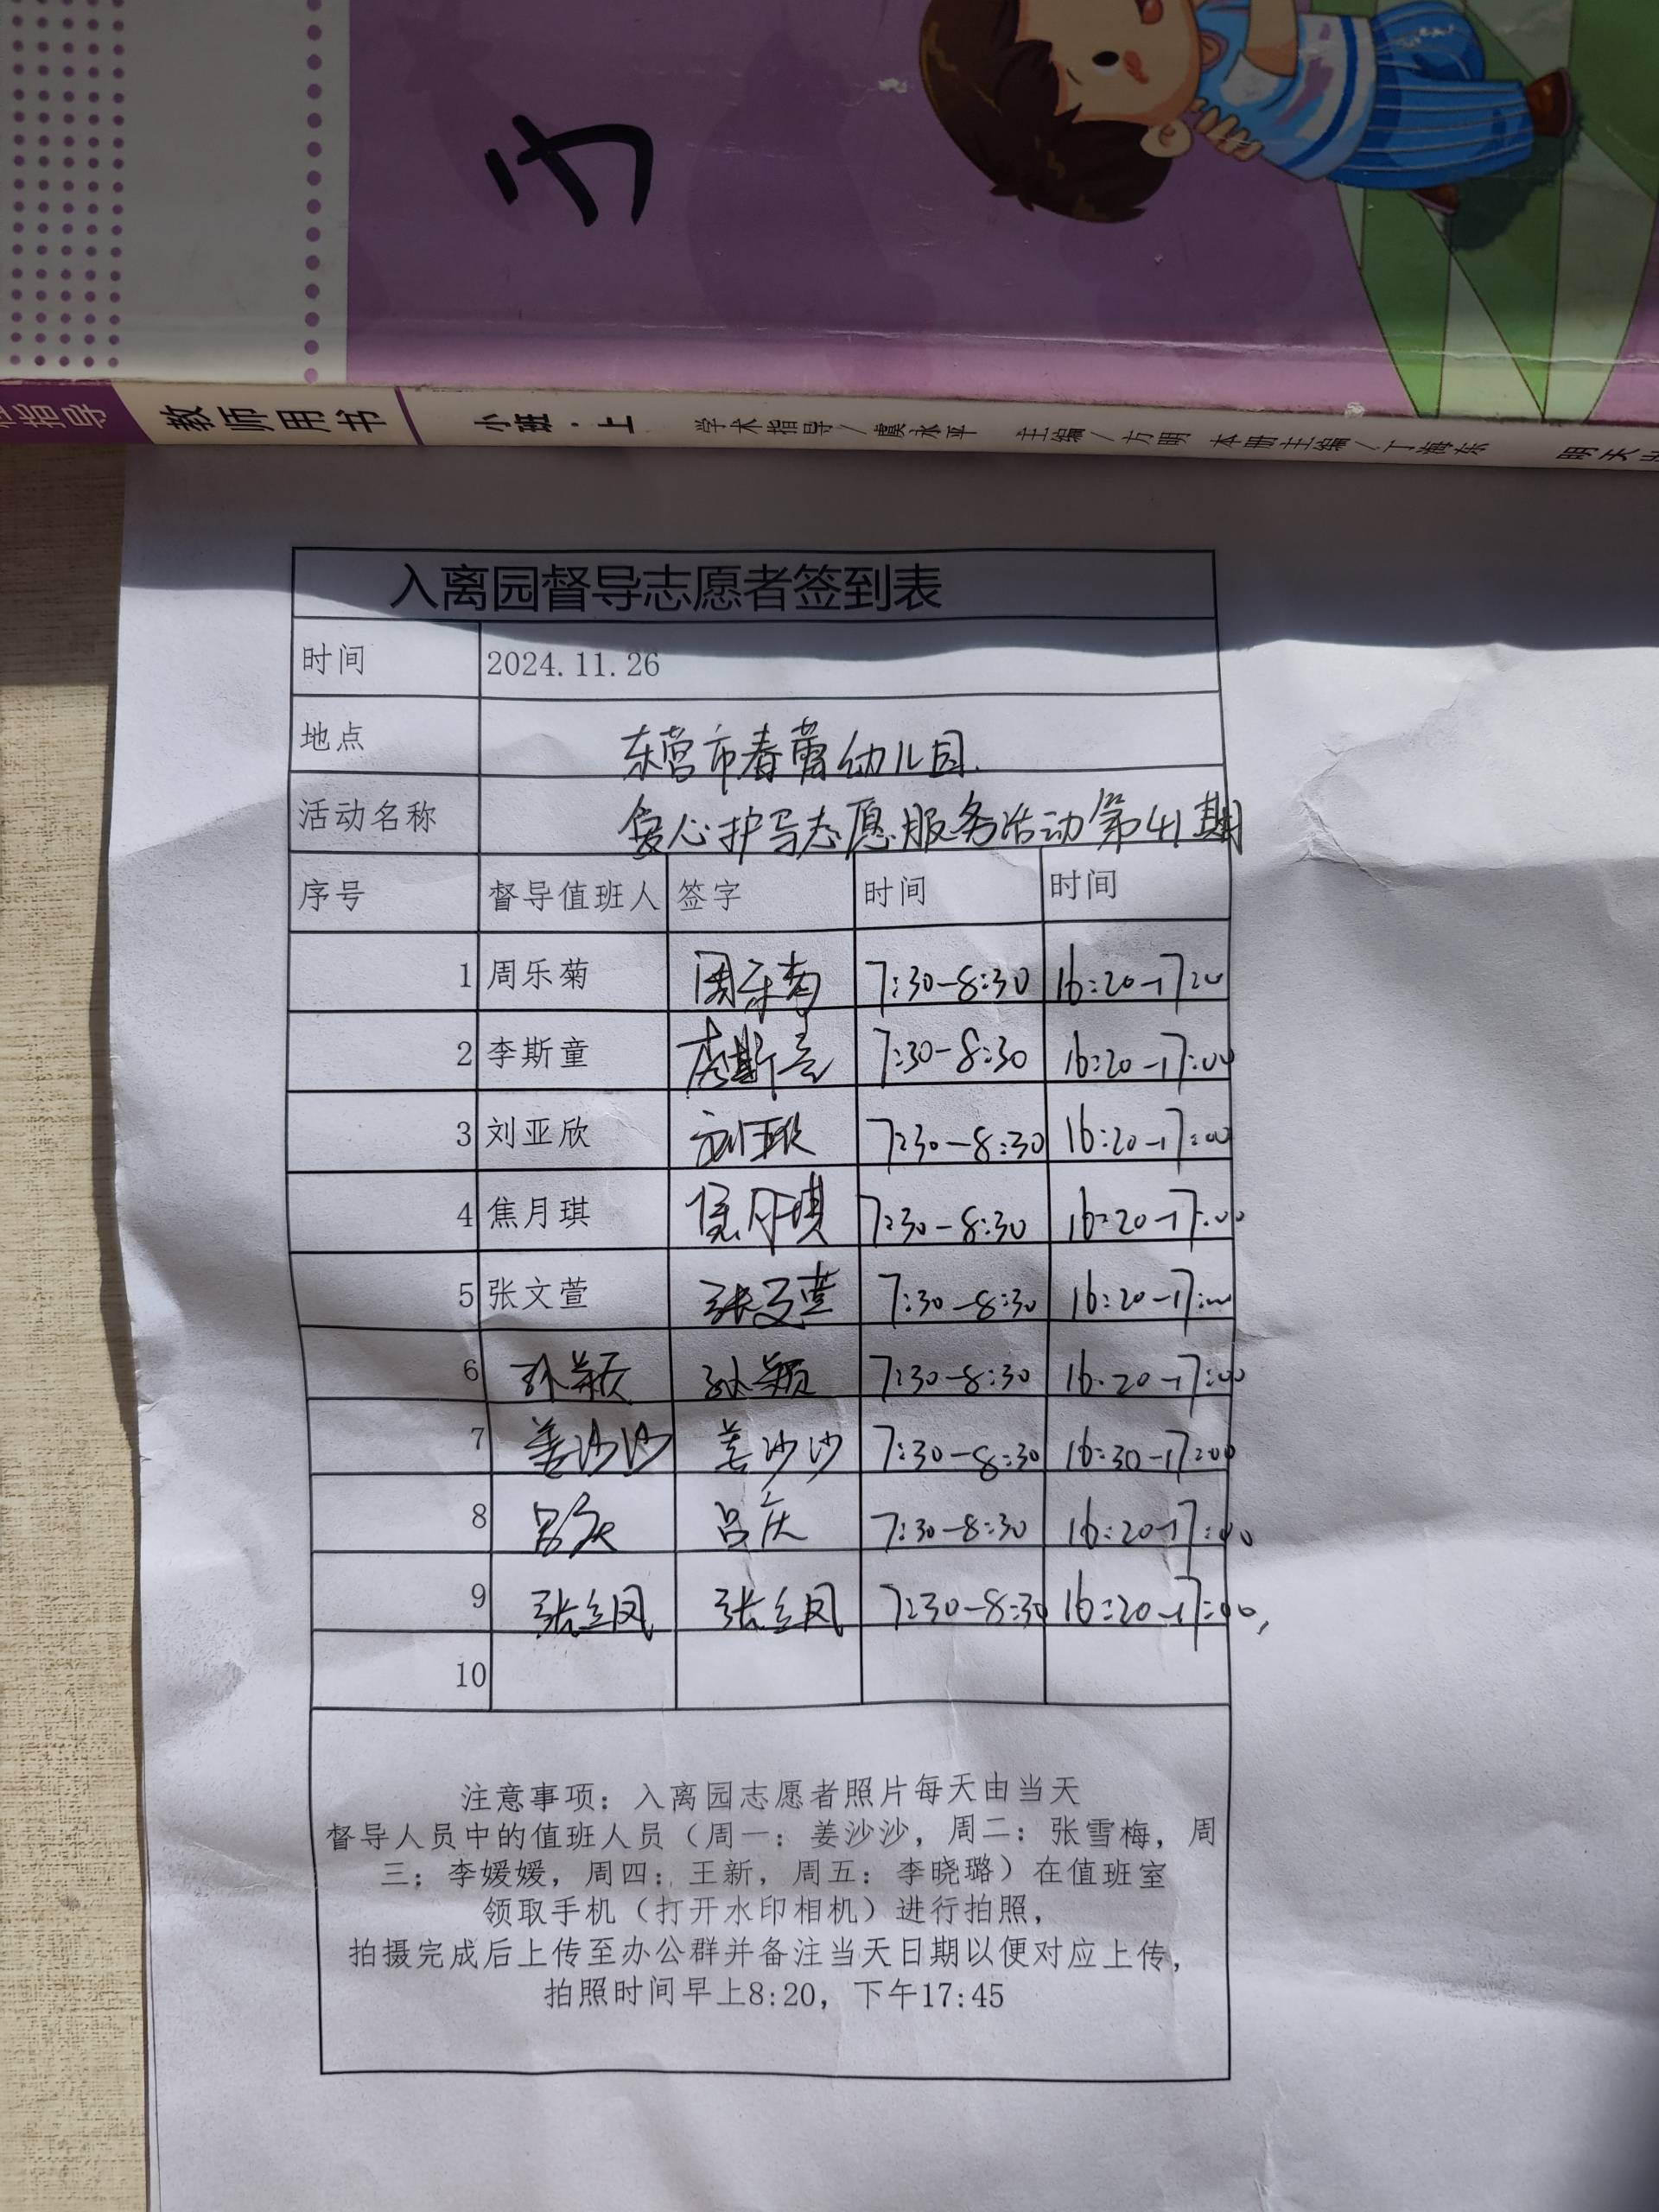 方
指导 教师用书 小班·上 学术指导/虞永平 主编/方明 本册主编/丁海东 明天
入离园督导志愿者签到表
时间 2024.11.26
地点 东营市春蕾幼儿园
活动名称 爱心护导志愿服务活动第41期
序号 督导值班人 签字 时间 时间
1 周乐菊 周乐菊 7:30-8:30 16:20-17:00
2 李斯童 李斯童 7:30-8:30 16:20-17:00
3 刘亚欣 刘亚欣 7:30-8:30 16:20-17:00
4 焦月琪 焦月琪 7:30-8:30 16:20-17:00
5 张文萱 张文萱 7:30-8:30 16:20-17:00
6 孙颖 孙颖 7:30-8:30 16:20-17:00
7 姜沙沙 姜沙沙 7:30-8:30 16:30-17:00
8 吕庆 吕庆 7:30-8:30 16:20-17:00
9 张立凤 张立凤 7:30-8:30 16:20-17:00
10
注意事项：入离园志愿者照片每天由当天
督导人员中的值班人员（周一：姜沙沙，周二：张雪梅，周
三：李媛媛，周四：王新，周五：李晓璐）在值班室
领取手机（打开水印相机）进行拍照，
拍摄完成后上传至办公群并备注当天日期以便对应上传，
拍照时间早上8:20，下午17:45